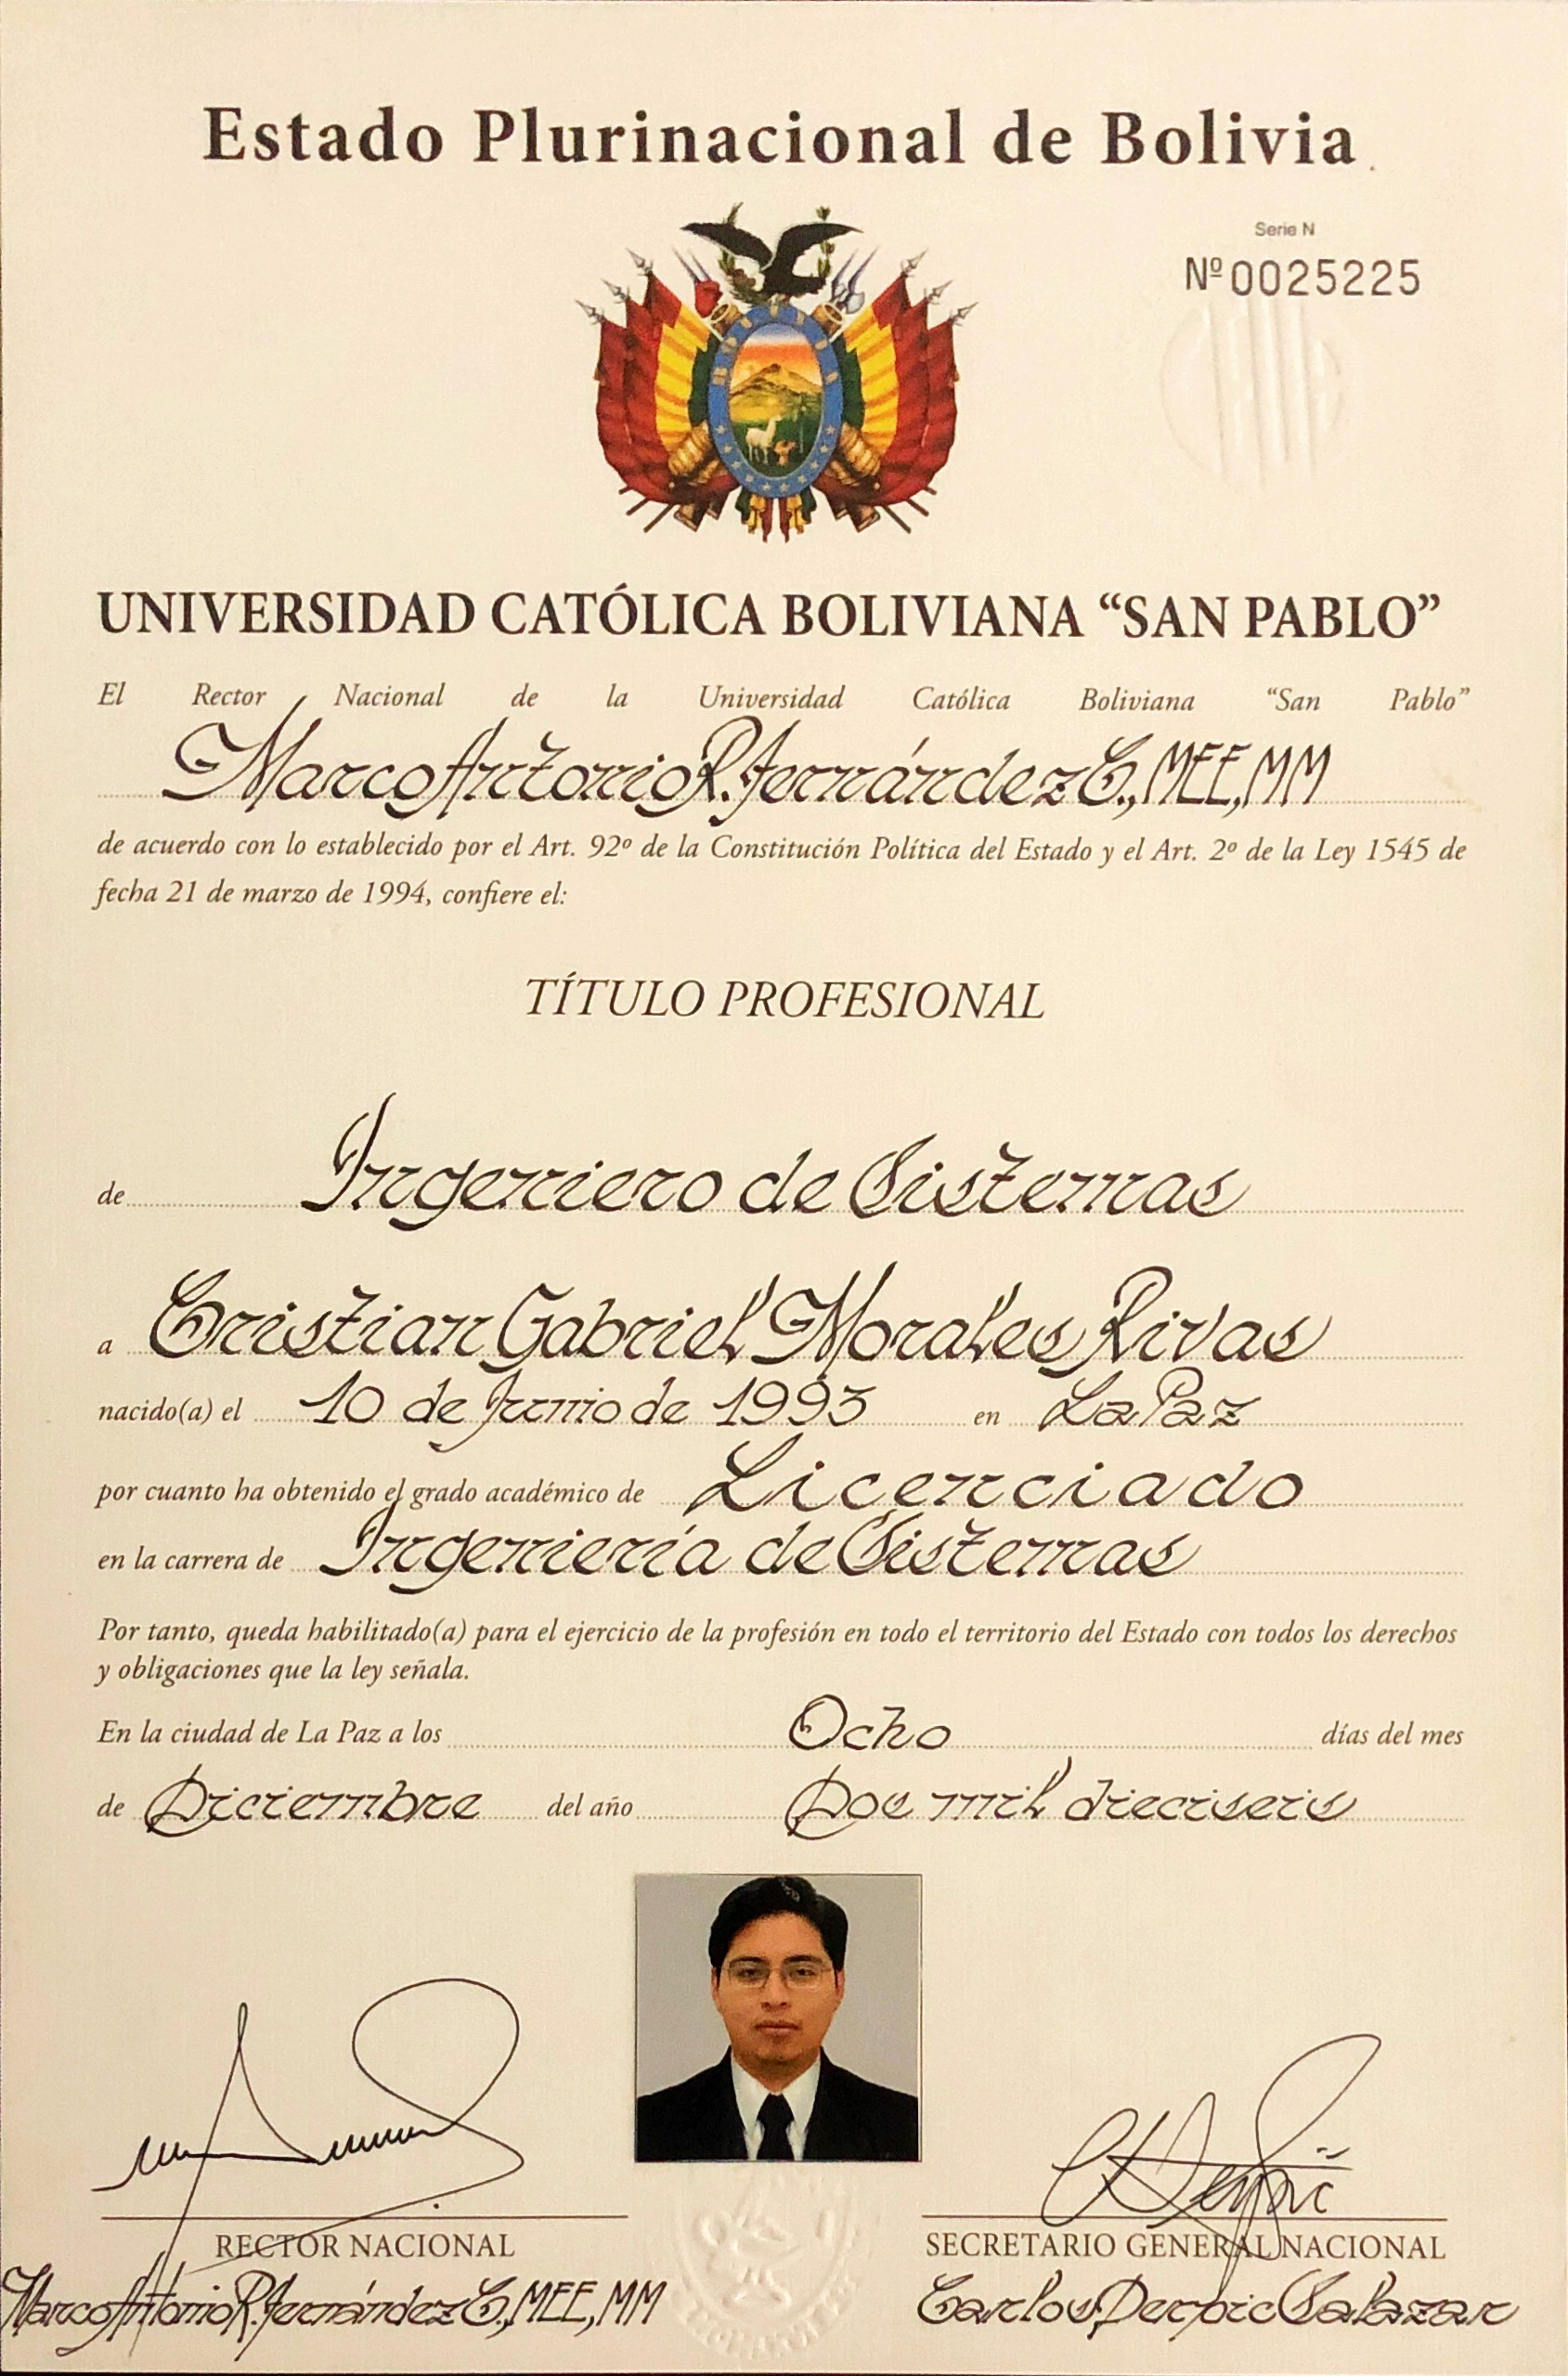 Estado Plurinacional de Bolivia
Serie N
Nº 0025225
UNIVERSIDAD CATÓLICA BOLIVIANA “SAN PABLO”
El Rector Nacional de la Universidad Católica Boliviana “San Pablo”
Marco Antonio R. Fernández C., MEE, MM
de acuerdo con lo establecido por el Art. 92º de la Constitución Política del Estado y el Art. 2º de la Ley 1545 de
fecha 21 de marzo de 1994, confiere el:
TÍTULO PROFESIONAL
de Ingeniero de Sistemas
a Cristian Gabriel Morales Rivas
nacido(a) el 10 de Junio de 1993 en La Paz
por cuanto ha obtenido el grado académico de Licenciado
en la carrera de Ingeniería de Sistemas
Por tanto, queda habilitado(a) para el ejercicio de la profesión en todo el territorio del Estado con todos los derechos
y obligaciones que la ley señala.
En la ciudad de La Paz a los Ocho días del mes
de Diciembre del año Dos mil dieciseis
RECTOR NACIONAL
Marco Antonio R. Fernández C., MEE, MM
SECRETARIO GENERAL NACIONAL
Carlos Derpic Salazar